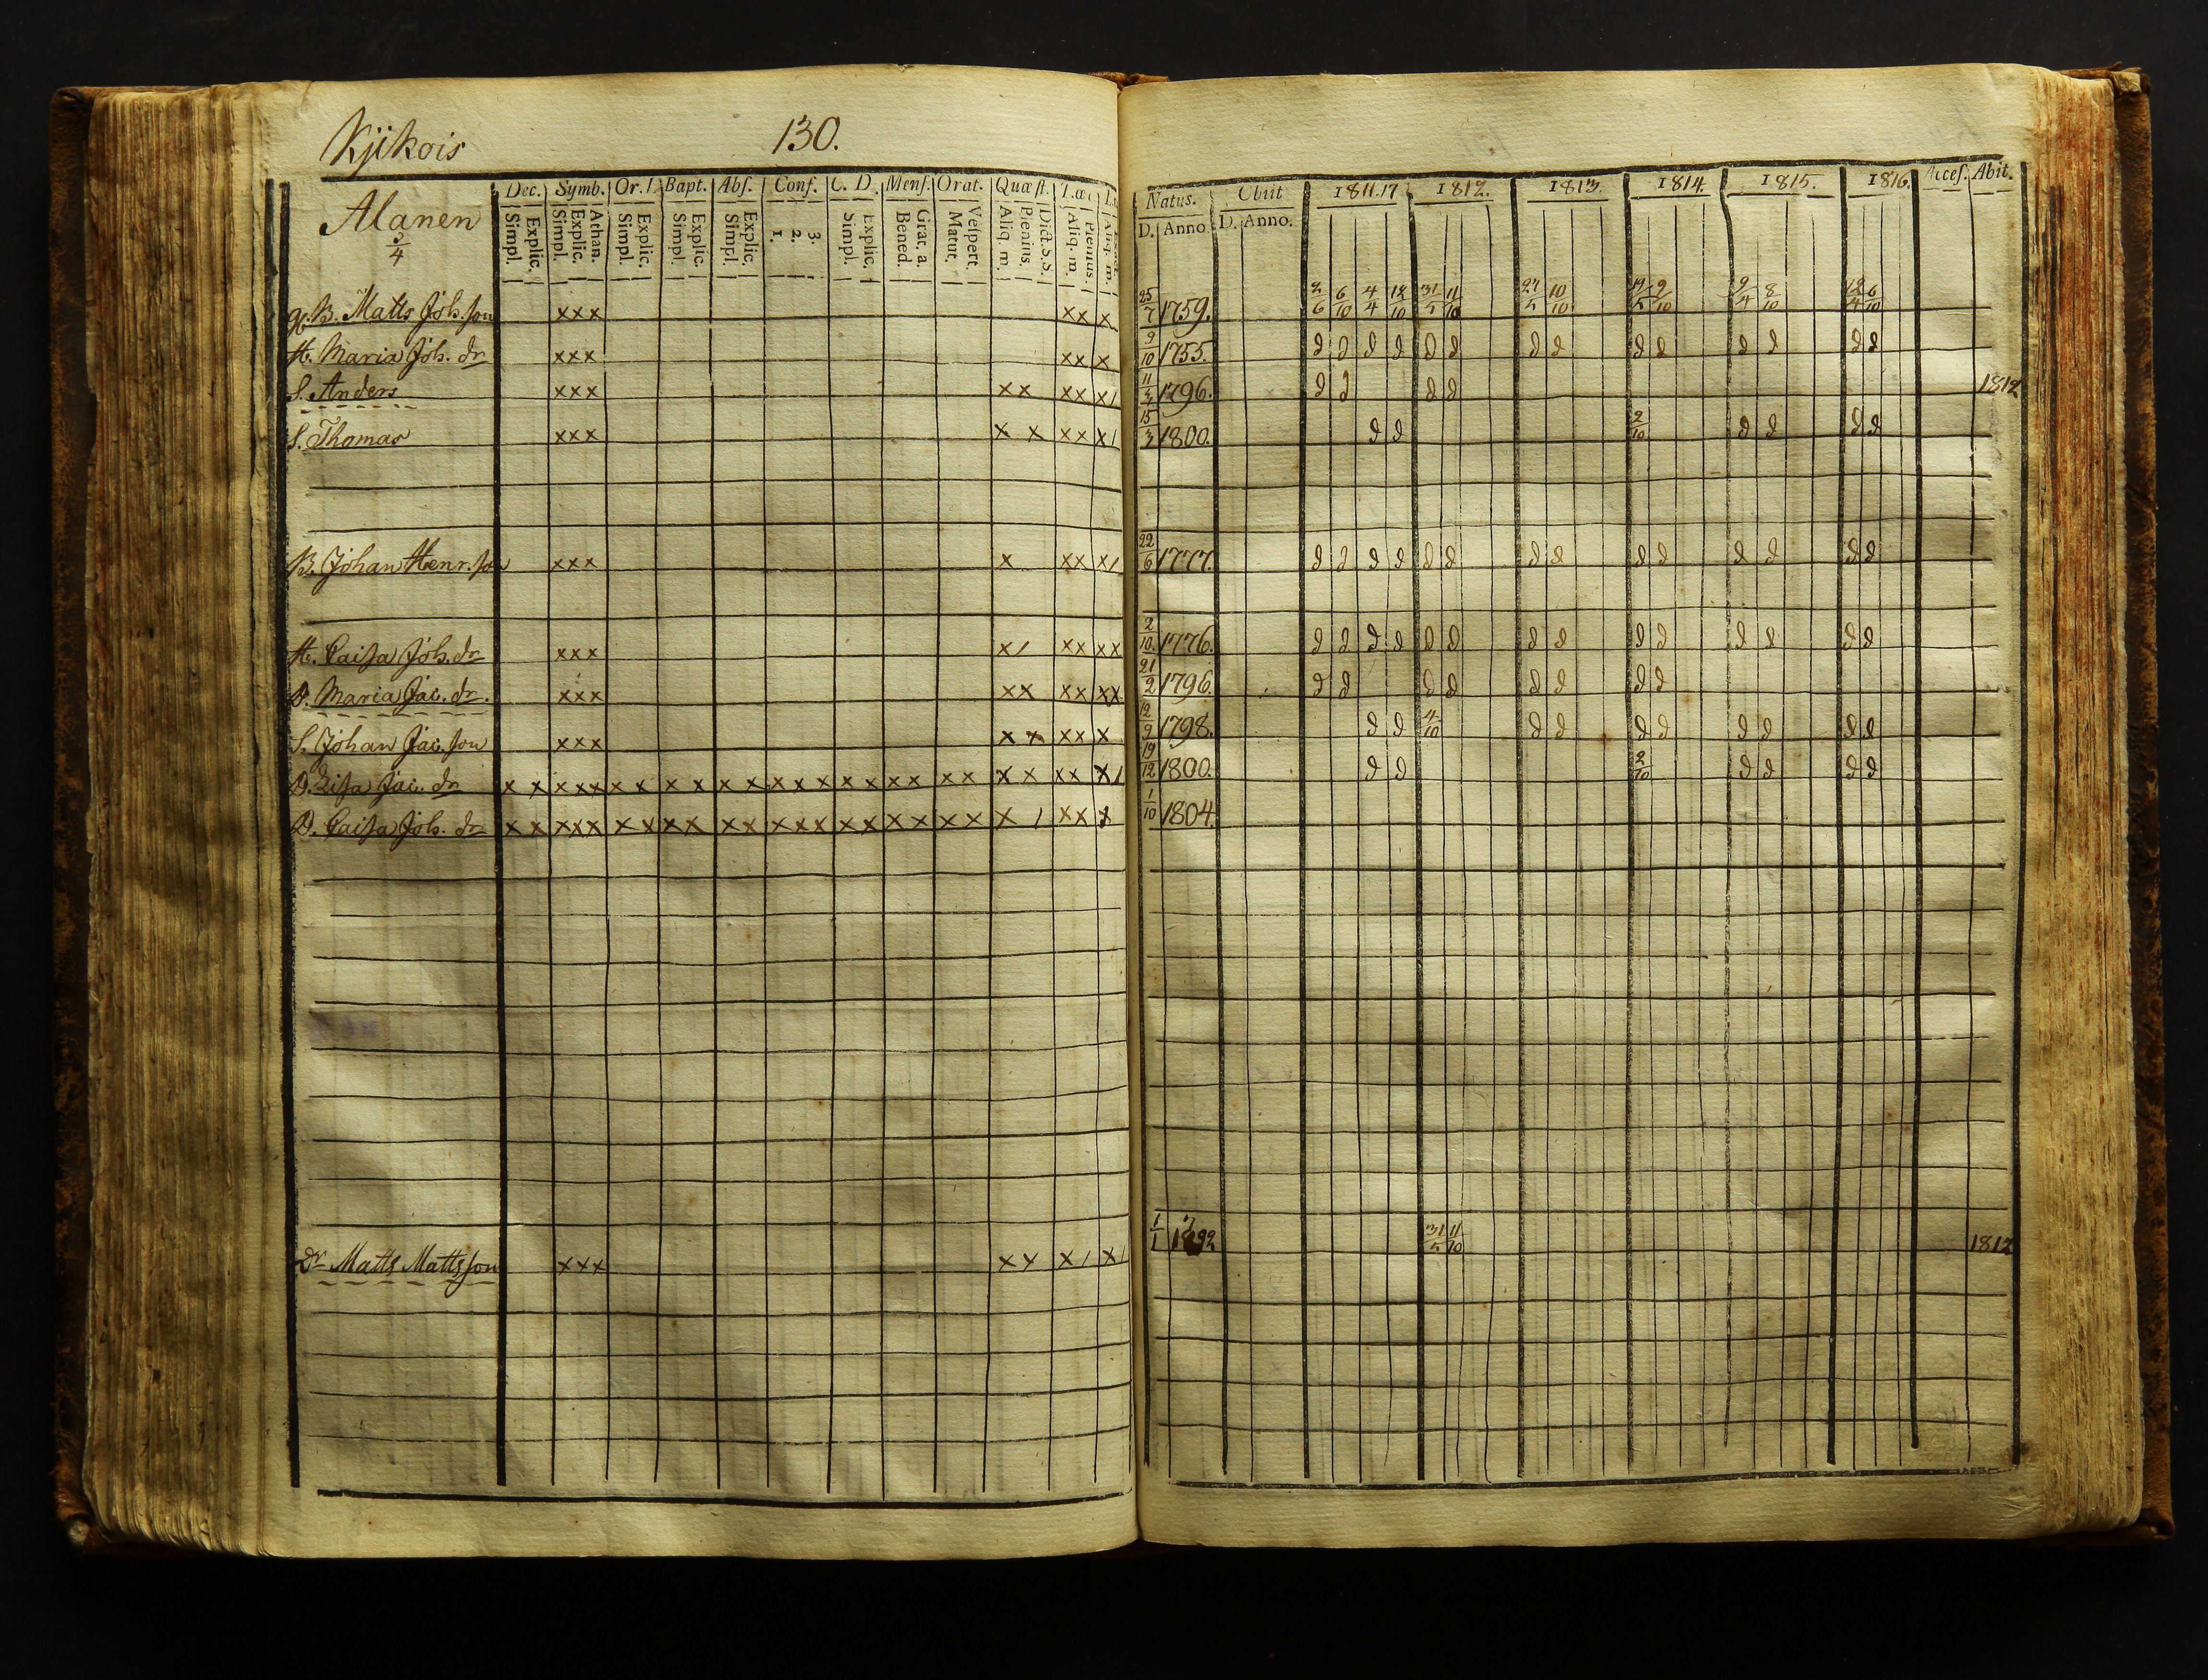 Kjikois 130.
Alanen
3/4
Dec. Symb. Or. Bapt. Abs. Conf. C. D. Mens. Orat. Quæst.
Simpl. Explic. Simpl. Explic. Athan. Simpl. Explic. Simpl. Explic. Simpl. Explic. 1. 2. 3. Simpl. Explic. Bened. Grat. a. Matut. Vespert. Aliq. m. Plenius. Dict. S.S. Aliq. m. Plenius. Aliq. m.
Natus. Obiit 1811.17 1812. 1813. 1814. 1815. 1816. Acces. Abit.
D. Anno D. Anno.
B. Matts Joh. son xxx xx x 25/7 1759. 2/6 6/10 4/4 18/10 31/5 11/10 27/5 10/10 14/5 9/10 9/4 8/10 18/4 6/10
H. Maria Joh. dr xxx xx x 9/10 1755. d d d d d d d d d d d d d d
S. Anders xxx xx xx x/ 11/4 1796. d d d d 1812
S. Thomas xxx x x xx x/ 15/3 1800. d d 2/10 d d d d
B. Johan Henr. son xxx x xx x/ 22/6 1777. d d d d d d d d d d d d d d
H. Caisa Joh. dr xxx x/ xx xx 2/10. 1776. d d d d d d d d d d d d d d
D. Maria Jac. dr. xxx xx xx xx 21/2 1796. d d d d d d d d
S. Johan Jac. son xxx x x xx x 12/9 1798. d d 4/10 d d d d d d d d
D. Lisa Jac. dr x x x x x x x x x x x x x x x x x x x x x x x x xx x/ 19/12 1800. d d 2/10 d d d d
D. Caisa Joh. dr x x xxx x x xx xx xxx xx xx xx x / xx x 1/10 1804.
Dr Matts Mattsson xxx xx x/ x/ 1/1 1792 31/5 11/10 1812